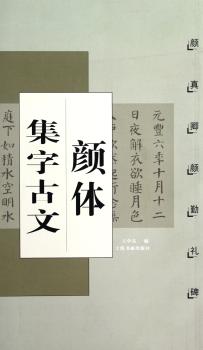 颜真卿颜勤礼碑
元豐六年十月十二
日夜解衣欲睡月色
庭下如積水空明水
颜体
集字古文
上海书画出版社